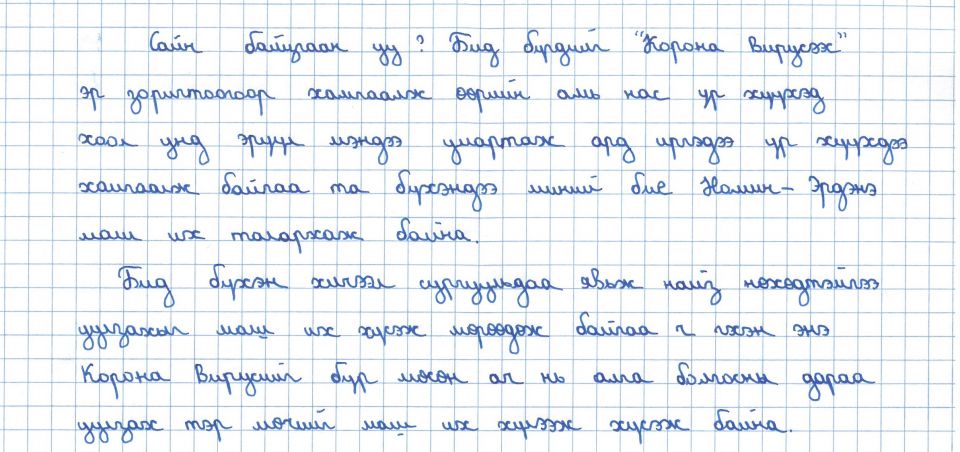 Сайн байцгаан уу? Бид бүрдийг "Корона Вирусээс"
эр зоригтоогоор хамгаалж өөрийн амь нас үр хүүхэд
хоол унд эрүүл мэндээ умартаж ард иргэдээ үр хүүхдээ
хамгаалж байгаа та бүхэндээ миний бие Номин-Эрдэнэ
маш их талархаж байна.
Бид бүхэн хичээл сургуульдаа явж найз нөхөдтэйгээ
уулзахыг маш их хүсэж мөрөөдөж байгаа ч гэхэн энэ
Корона Вирусийг бүр мөсөн ач нь алга болгосны дараа
уулзах тэр мөчийг маш их хүлээж хүсэж байна.